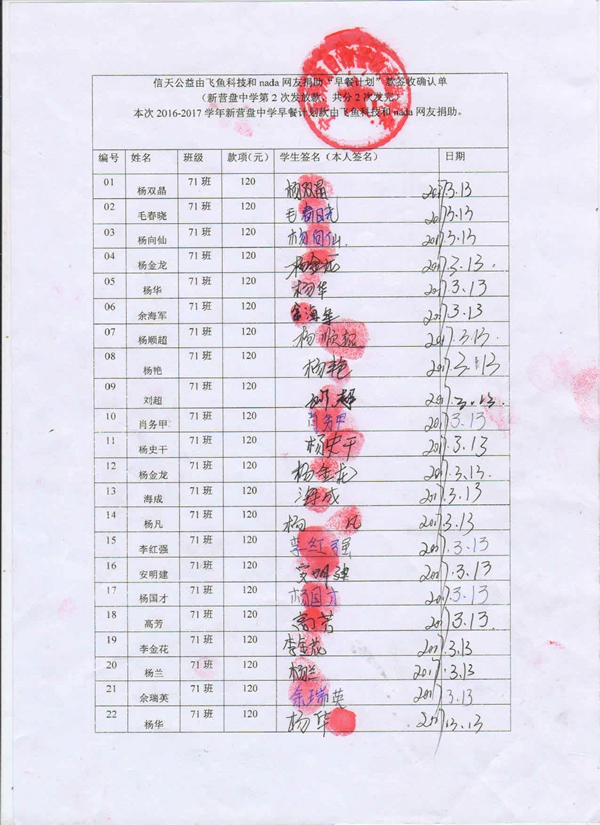 信天公益由飞鱼科技和 nada 网友捐助“早餐计划”款签收确认单
（新营盘中学第 2 次发放款、共分 2 次发完
本次 2016-2017 学年新营盘中学早餐计划款由飞鱼科技和 nada 网友捐助。
编号 姓名 班级 款项(元) 学生签名（本人签名） 日期
01 杨双晶 71 班 120 杨双晶 2017.3.13
02 毛春晓 71 班 120 毛春晓 2017.3.13
03 杨向仙 71 班 120 杨向仙 2017.3.13
04 杨金龙 71 班 120 杨金龙 2017.3.13
05 杨华 71 班 120 杨华 2017.3.13
06 余海军 71 班 120 余海军 2017.3.13
07 杨顺超 71 班 120 杨顺超 2017.3.13
08 杨艳 71 班 120 杨艳 2017.3.13
09 刘超 71 班 120 刘超 2017.3.13
10 肖务甲 71 班 120 肖务甲 2017.3.13
11 杨史干 71 班 120 杨史干 2017.3.13
12 杨金龙 71 班 120 杨金龙 2017.3.13.
13 海成 71 班 120 海成 2017.3.13
14 杨凡 71 班 120 杨凡 2017.3.13
15 李红强 71 班 120 李红强 2017.3.13
16 安明建 71 班 120 安明建 2017.3.13
17 杨国才 71 班 120 杨国才 2017.3.13
18 高芳 71 班 120 高芳 2017.3.13
19 李金花 71 班 120 李金花 2017.3.13
20 杨兰 71 班 120 杨兰 2017.3.13
21 余瑞英 71 班 120 余瑞英 2017.3.13
22 杨华 71 班 120 杨华 2017.3.13